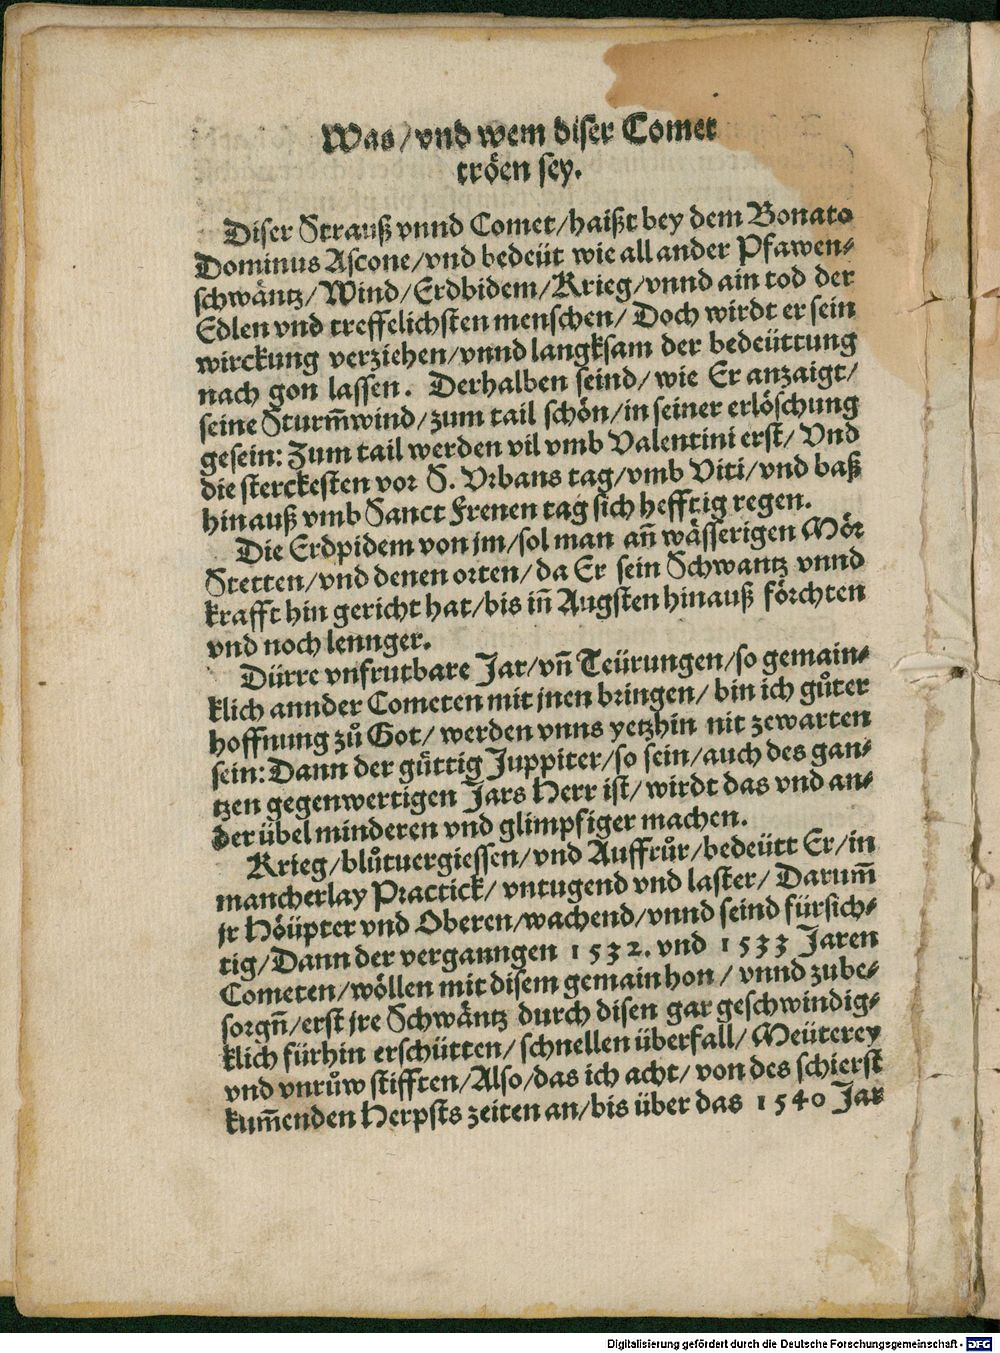 Was/vnd wem diser Comet
tröen sey.
Diser Strauß vnnd Comet/haißt bey dem Bonato
Dominus Ascone/vnd bedeüt wie all ander Pfawen⸗
schwäntz/Wind/Erdbidem/Krieg/vnnd ain tod der
Edlen vnd treffelichsten menschen/ Doch wirdt er sein
wirckung verziehen/vnnd langksam der bedeüttung
nach gon lassen. Derhalben seind/wie Er anzaigt/
seine Sturm̃wind/zum tail schön/in seiner erlöschung
gesein: Zum tail werden vil vmb Valentini erst/ Vnd
die sterckesten vor S. Vrbans tag/vmb Viti/vnd baß
hinauß vmb Sanct Frenen tag sich hefftig regen.
Die Erdpidem von jm/sol man an̄ wässerigen Mör
Stetten/vnd denen orten/da Er sein Schwantz vnnd
krafft hin gericht hat/bis in̄ Augsten hinauß förchten
vnd noch lennger.
Dürre vnfrutbare Jar/vn̄ Teürungen/so gemain⸗
klich annder Cometen mit jnen bringen/ bin ich gůter
hoffnung zů Got/ werden vnns yetzhin nit zewarten
sein: Dann der güttig Juppiter/so sein/auch des gan⸗
tzen gegenwertigen Jars Herr ist/ wirdt das vnd an⸗
der übel minderen vnd glimpfiger machen.
Krieg/blůtuergiessen/vnd Auffrůr/bedeütt Er/in
mancherlay Practick/ vntugend vnd laster/ Darum̄
jr Höüpter vnd Oberen/wachend/vnnd seind fürsich⸗
tig/Dann der verganngen 1532. vnd 1533 Jaren
Cometen/wöllen mit disem gemain hon/ vnnd zube⸗
sorgn̄/erst jre Schwäntz durch disen gar geschwindig⸗
klich fürhin erschütten/ schnellen überfall/ Meüterey
vnd vnrůw stifften/Also/das ich acht/ von des schierst
kum̄enden Herpsts zeiten an/bis über das 1540 Jar
Digitalisierung gefördert durch die Deutsche Forschungsgemeinschaft - DFG